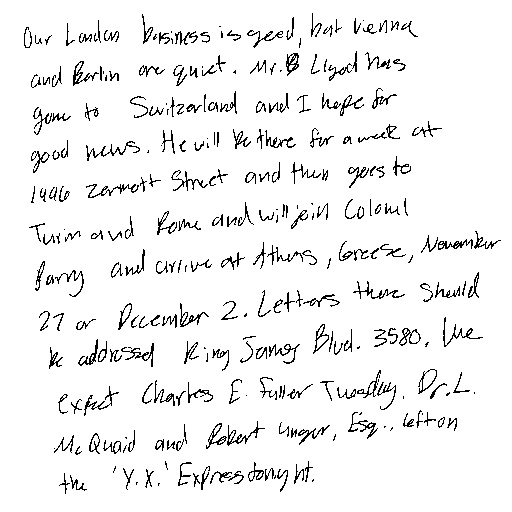 Our London business is good, but Vienna
and Berlin are quiet. Mr. B Lloyd has
gone to Switzerland and I hope for
good news. He will be there for a week at
1496 Zermott Street and then goes to
Turin and Rome and will join Colonel
Parry and arrive at Athens, Greese, November
27 or December 2. Letters there should
be addressed King James Blvd. 3580. We
expect Charles E. Fuller Tuesday. Dr. L.
McQuaid and Robert Unger, Esq., left on
the 'Y.X.' Express tonight.